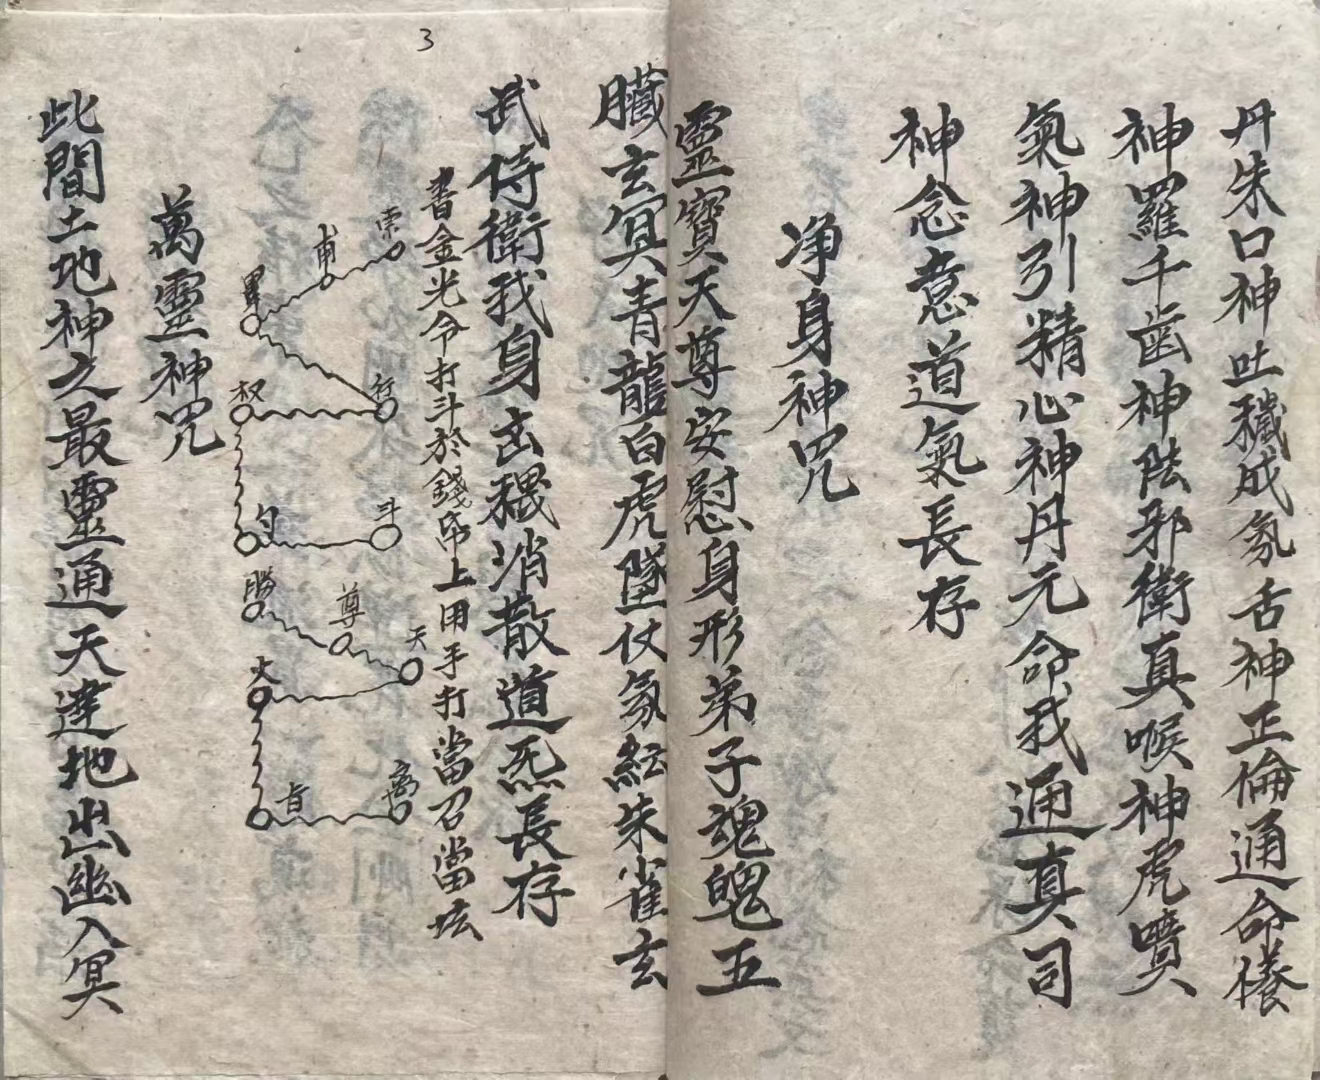 丹朱口神吐穢成氛舌神正倫通命養
神羅千齒神𨚫邪衛真喉神虎噴
氣神引精心神丹元命我通真司
神念意道氣長存
净身神咒
靈寶天尊安慰身形弟子魂魄五
臟玄冥青龍白虎墜仗氛紜朱雀玄
武侍衛我身凶穢消散道炁長存
書金光令打斗於錢帛上用手打當召當坛
甫
畢
权
行
勺
斗
勝
尊
天
火
皆
高
萬靈神咒
此間土地神之最靈通天達地出幽入冥
3